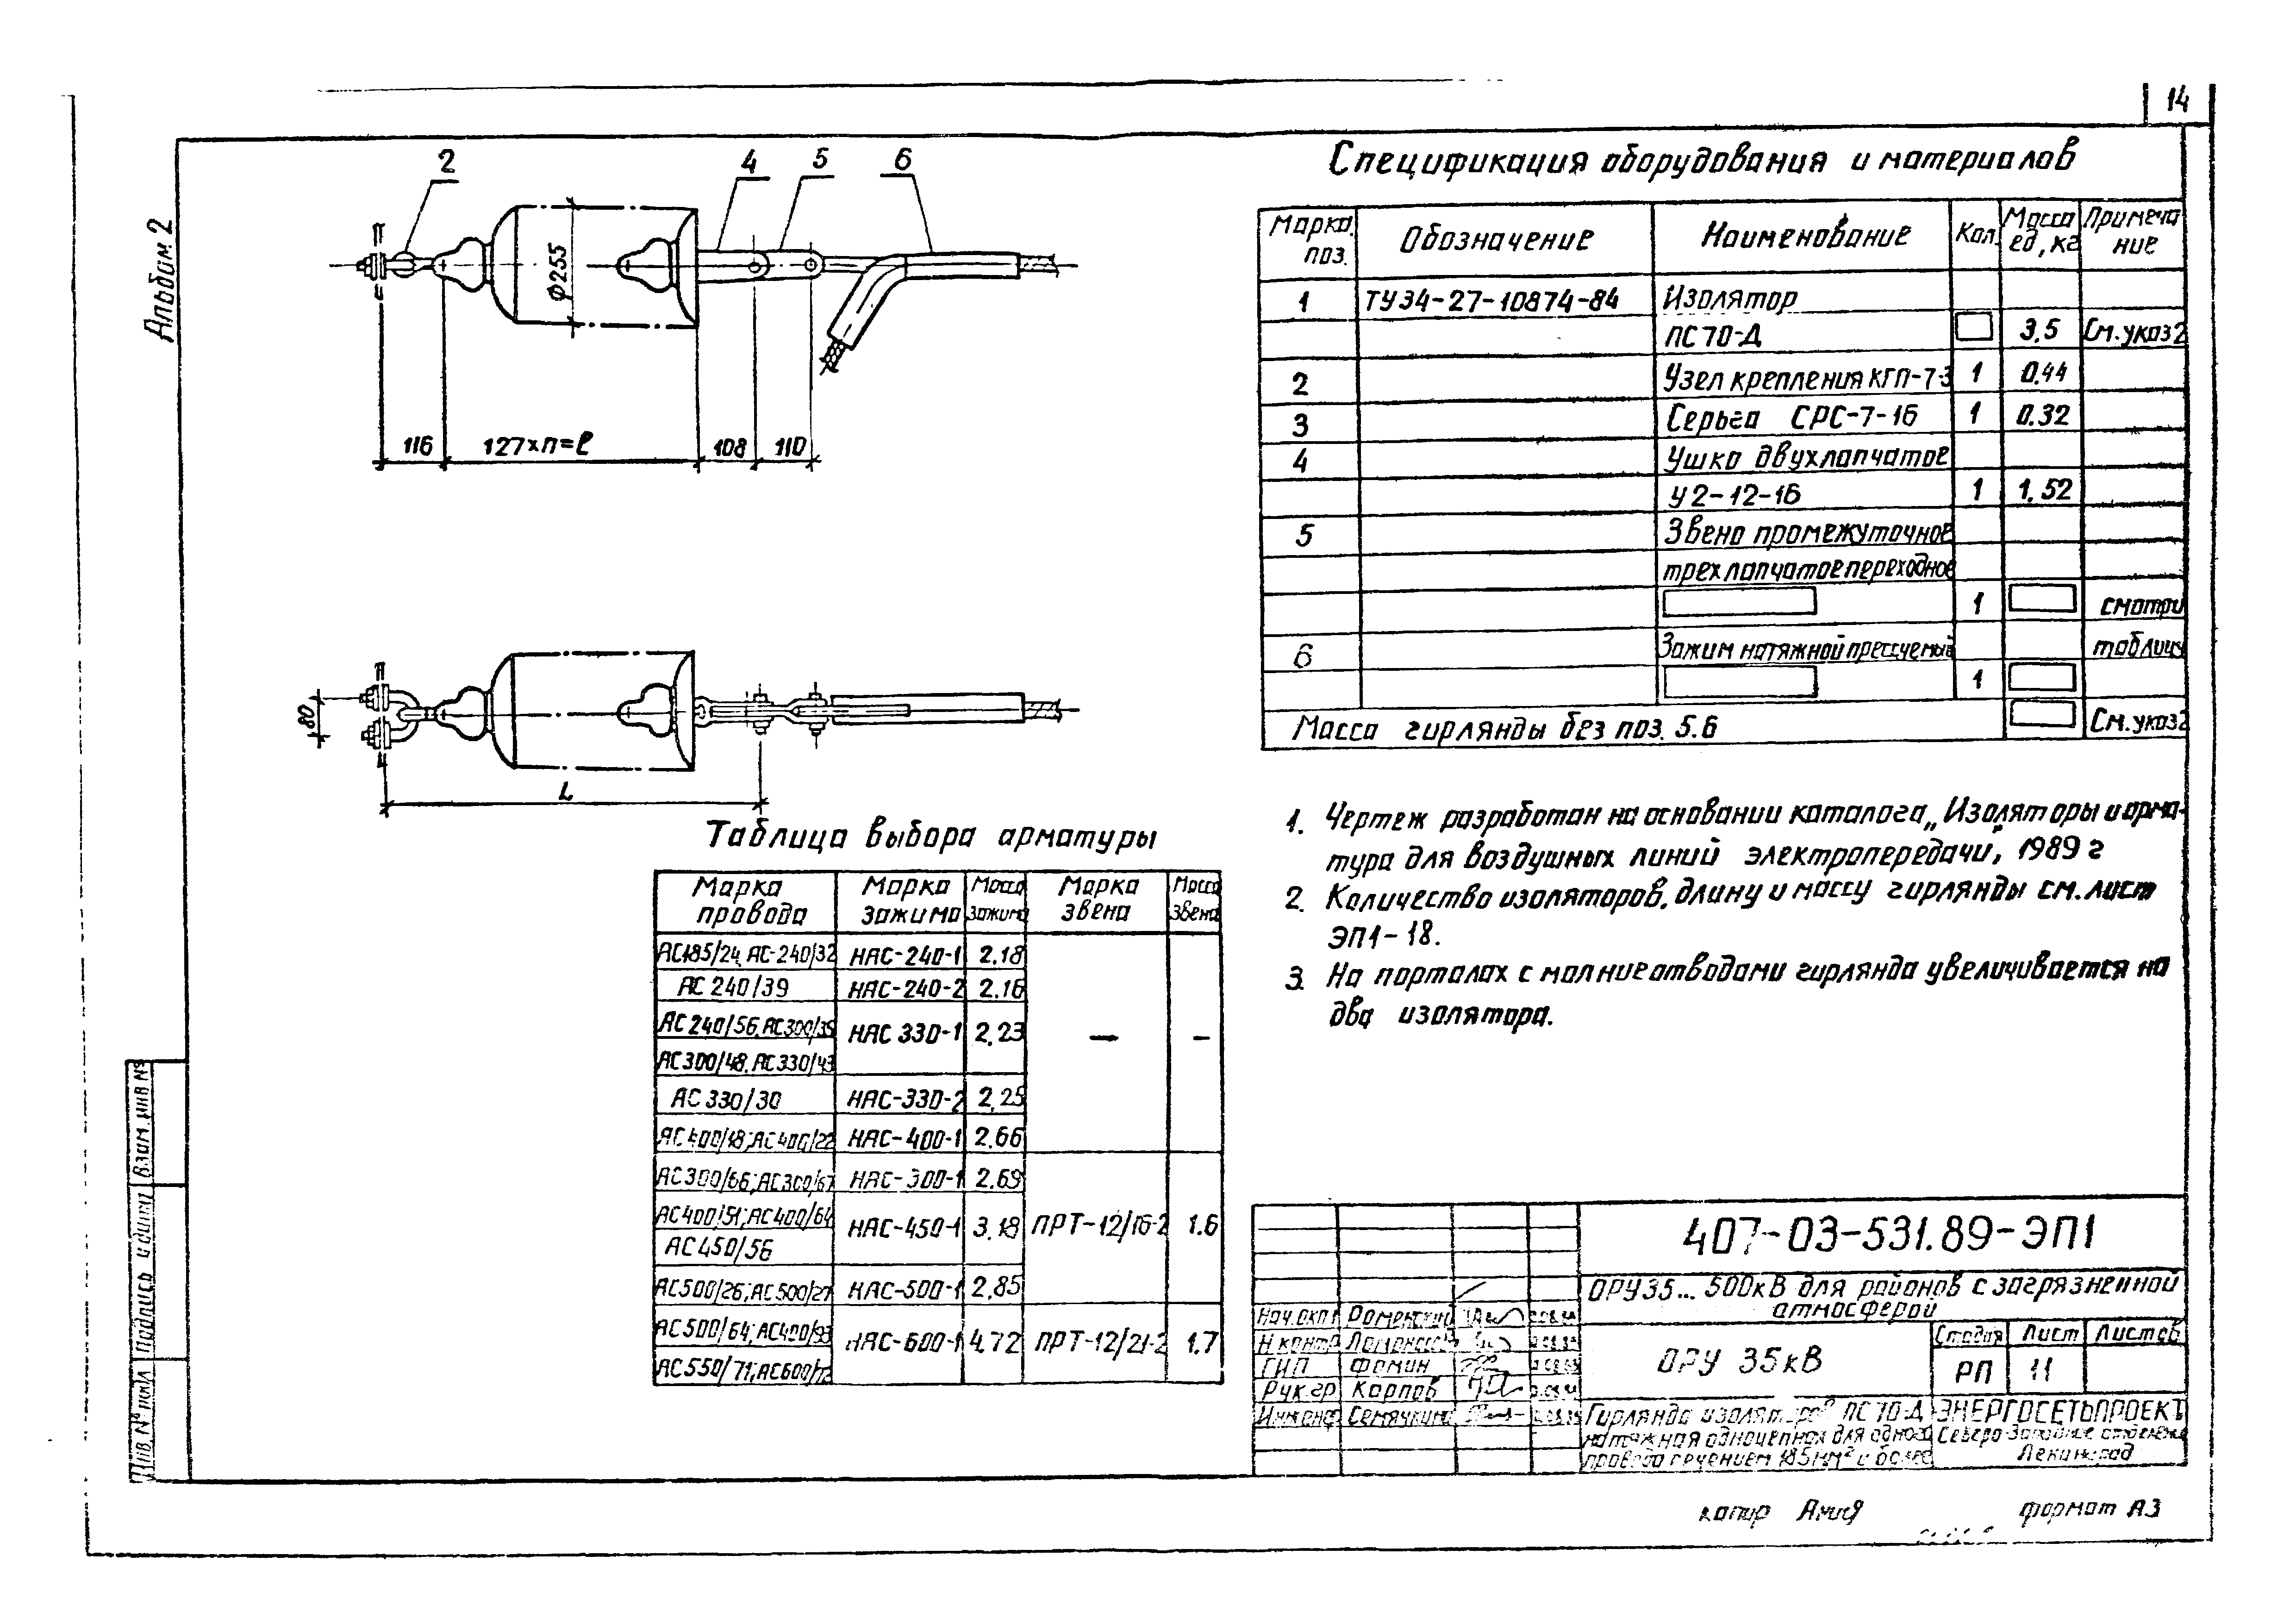 14
Альбом 2
2 4 5 6
Ф255
116 127×п=ℓ 108 110
80
L
Спецификация оборудования и материалов
Марка, поз. Обозначение Наименование Кол. Масса ед, кг Примечание
1 ТУ34-27-10874-84 Изолятор
ПС70-Д 3,5 См. указ 2
2 Узел крепления КГП-7-3 1 0,44
3 Серьга СРС-7-16 1 0.32
4 Ушко двухлапчатое
У2-12-16 1 1,52
5 Звено промежуточное
трехлапчатое переходное
1 смотри
6 Зажим натяжной прессуемый таблицу
1
Масса гирлянды без поз. 5.6 См. указ 2
1. Чертеж разработан на основании каталога „Изоляторы и арма-
тура для воздушных линий электропередачи", 1989 г
2. Количество изоляторов, длину и массу гирлянды см. лист
ЭП1-18.
3. На порталах с молниеотводами гирлянда увеличивается на
два изолятора.
Таблица выбора арматуры
Марка провода Марка зажима Масса зажима Марка звена Масса звена
АС185/24, АС-240/32 НАС-240-1 2.18
АС 240/39 НАС-240-2 2.16
АС240/56, АС300/39 НАС 330-1 2,23 — –
АС300/48, АС330/43
АС 330/30 НАС-330-2 2,25
АС400/18; АС400/22 НАС-400-1 2.66
АС300/66; АС300/67 НАС-300-1 2.69
АС400/51; АС400/64 НАС-450-1 3,18 ПРТ-12/16-2 1.6
АС450/56
АС500/26; АС500/27 НАС-500-1 2,85
АС500/64; АС400/93 НАС-600-1 4,72 ПРТ-12/21-2 1.7
АС550/71; АС600/72
407-03-531.89-ЭП1
ОРУ35... 500кВ для районов с загрязненной
атмосферой
ОРУ 35кВ
Стадия Лист Листов
РП 11
Нач. окп Роменский
Н. контр
ГИП Фомин
Рук. гр. Карпов
Инженер Семячкина
Гирлянда изоляторов ПС70-Д
натяжная одноцепная для одного
провода сечением 185мм² и более
ЭНЕРГОСЕТЬПРОЕКТ
Северо-Западное отделение
Ленинград
Взам. инв. №
Подпись и дата
Инв. № подл
копир
формат А3